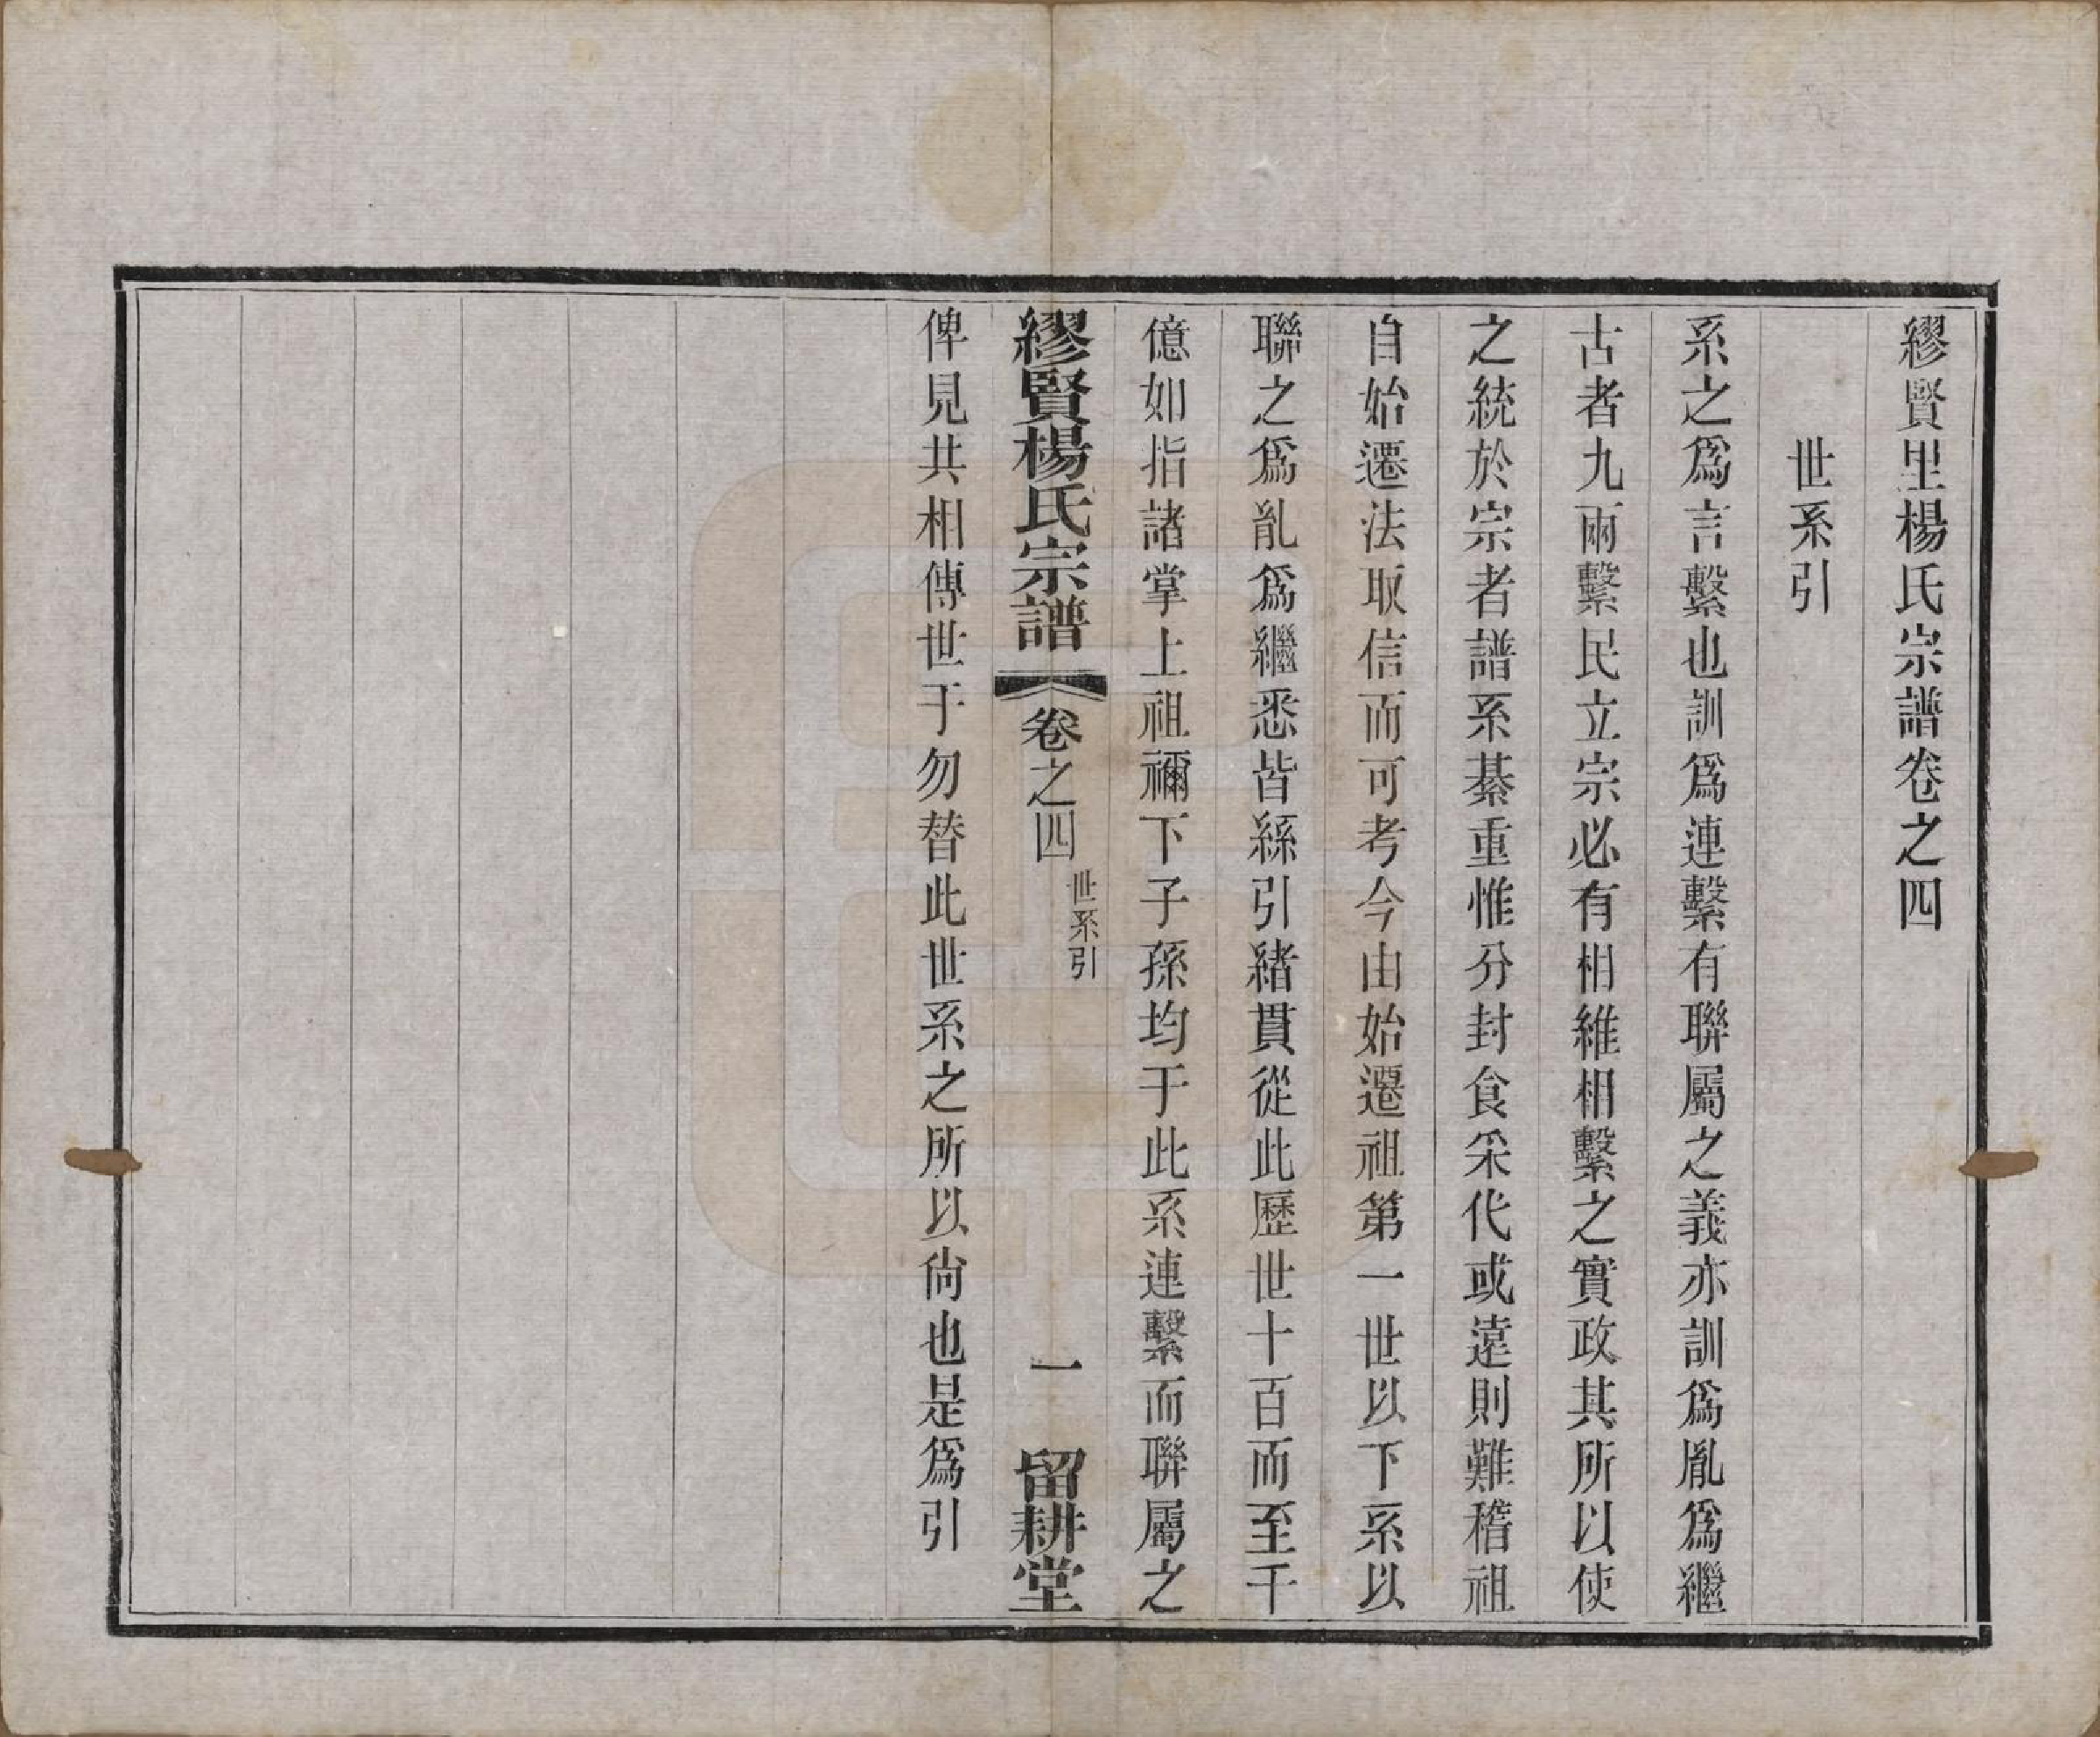 繆賢里楊氏宗譜卷之四
世系引
系之爲言繫也訓爲連繫有聯屬之義亦訓爲胤爲繼
古者九兩繫民立宗必有相維相繫之實政其所以使
之統於宗者譜系綦重惟分封食采代或遠則難稽祖
自始遷法取信而可考今由始遷祖第一世以下系以
聯之爲胤爲繼悉皆繇引緒貫從此歷世十百而至千
億如指諸掌上祖禰下子孫均于此系連繫而聯屬之
繆賢楊氏宗譜 卷之四 世系引 一 留耕堂
俾見共相傳世于勿替此世系之所以尙也是爲引